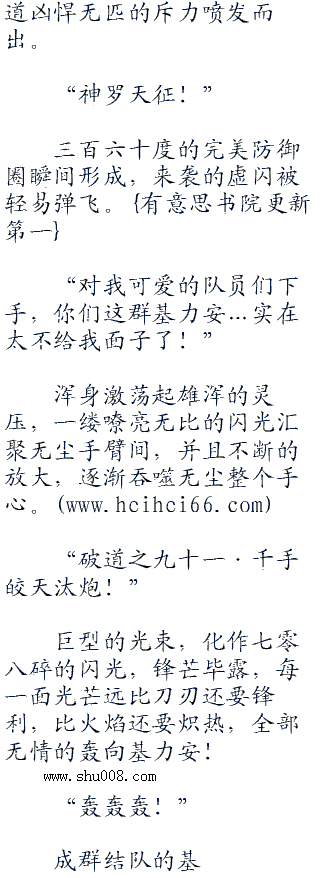 道凶悍无匹的斥力喷发而
出。
“神罗天征！”
三百六十度的完美防御
圈瞬间形成，来袭的虚闪被
轻易弹飞。{有意思书院更新
第一}
“对我可爱的队员们下
手，你们这群基力安...实在
太不给我面子了！”
浑身激荡起雄浑的灵
压，一缕嘹亮无比的闪光汇
聚无尘手臂间，并且不断的
放大，逐渐吞噬无尘整个手
心。(www.hcihci66.com)
“破道之九十一·千手
皎天汰炮！”
巨型的光束，化作七零
八碎的闪光，锋芒毕露，每
一面光芒远比刀刃还要锋
利，比火焰还要炽热，全部
无情的轰向基力安！
www.shu008.com
“轰轰轰！”
成群结队的基